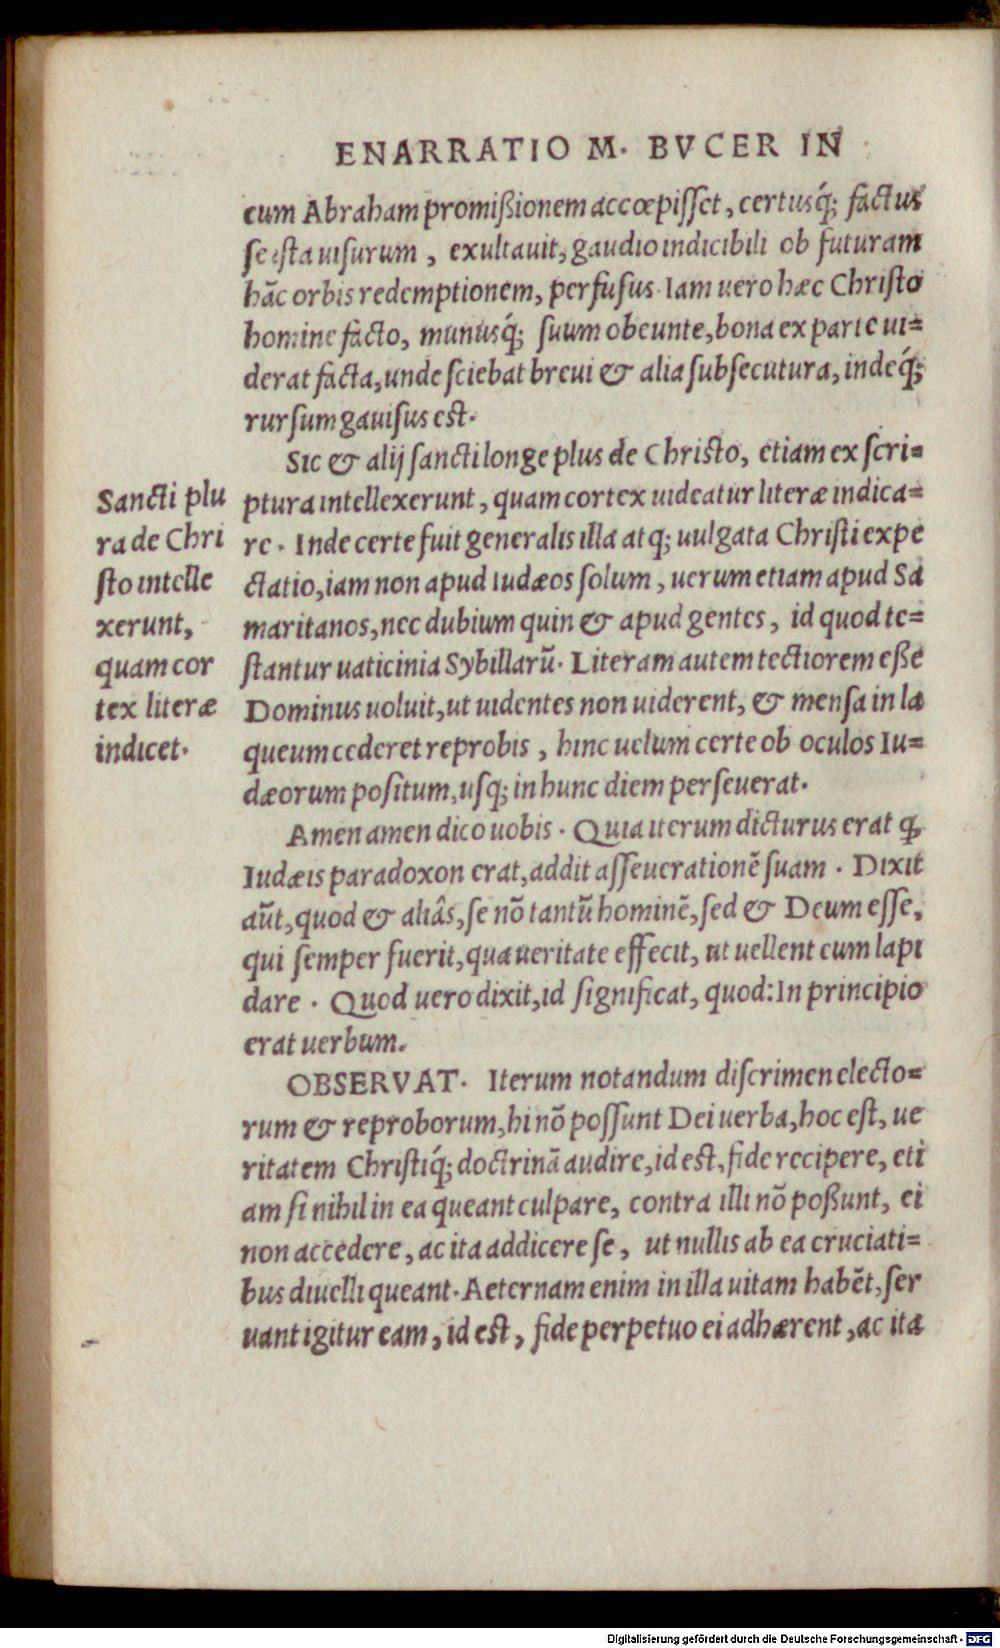 ENARRATIO M. BVCER IN
cum Abraham promißionem accœpisset, certusq́; factus
se ista uisurum, exultauit, gaudio indicibili ob futuram
hāc orbis redemptionem, perfusus. Iam uero hæc Christo
homine facto, munusq́; suum obeunte, bona ex parte ui=
derat facta, unde sciebat breui & alia subsecutura, indeq́;
rursum gauisus est.
Sic & alij sancti longe plus de Christo, etiam ex scri=
ptura intellexerunt, quam cortex uideatur literæ indica=
re. Inde certe fuit generalis illa atq; uulgata Christi expe
ctatio, iam non apud Iudæos solum, uerum etiam apud Sa
maritanos, nec dubium quin & apud gentes, id quod te=
stantur uaticinia Sybillarū. Literam autem tectiorem eße
Dominus uoluit, ut uidentes non uiderent, & mensa in la
queum cederet reprobis, hinc uelum certe ob oculos Iu=
dæorum positum, usq; in hunc diem perseuerat.
Sancti plu
ra de Chri
sto intelle
xerunt,
quam cor
tex literæ
indicet.
Amen amen dico uobis. Quia iterum dicturus erat q̨
Iudæis paradoxon erat, addit asseuerationē suam. Dixit
aūt, quod & aliâs, se nō tantū hominē, sed & Deum esse,
qui semper fuerit, qua ueritate effecit, ut uellent eum lapi
dare. Quod uero dixit, id significat, quod: In principio
erat uerbum.
OBSERVAT. Iterum notandum discrimen electo=
rum & reproborum, hi nō possunt Dei uerba, hoc est, ue
ritatem Christiq́; doctrinā audire, id est, fide recipere, eti
am si nihil in ea queant culpare, contra illi nō poßunt, ei
non accedere, ac ita addicere se, ut nullis ab ea cruciati=
bus diuelli queant. Aeternam enim in illa uitam habēt, ser
uant igitur eam, id est, fide perpetuo ei adhærent, ac ita
Digitalisierung gefördert durch die Deutsche Forschungsgemeinschaft - DFG